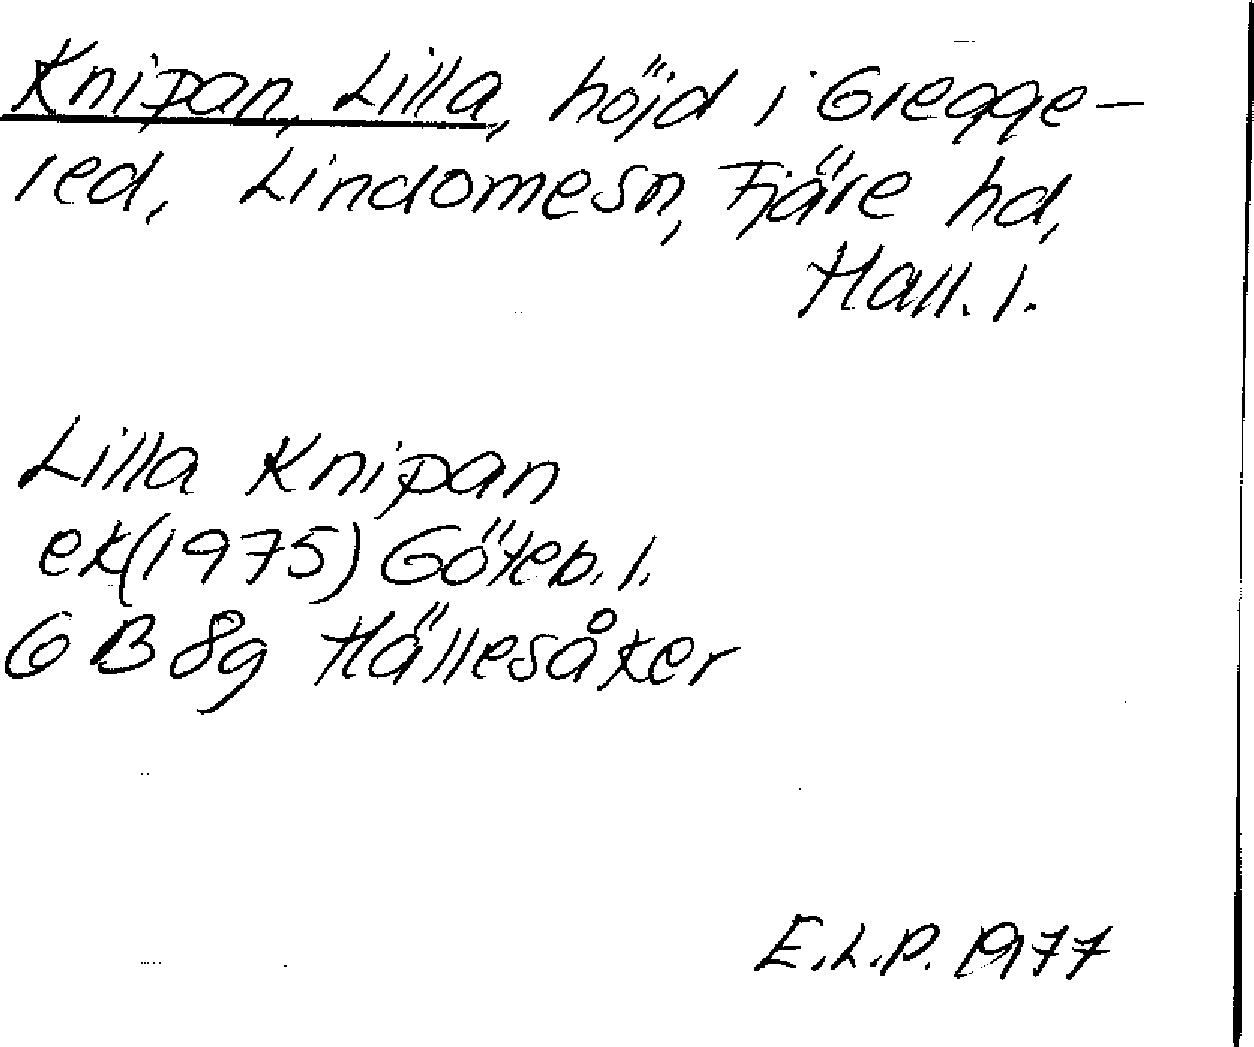 Knipan, Lilla, höjd i Gregge-
red, Lindome sn, Fjäre hd,
Hall. l.
Lilla Knipan
ek(1975) Göteb. l.
6 B 8g Hällesåker
E.L.P. 1977